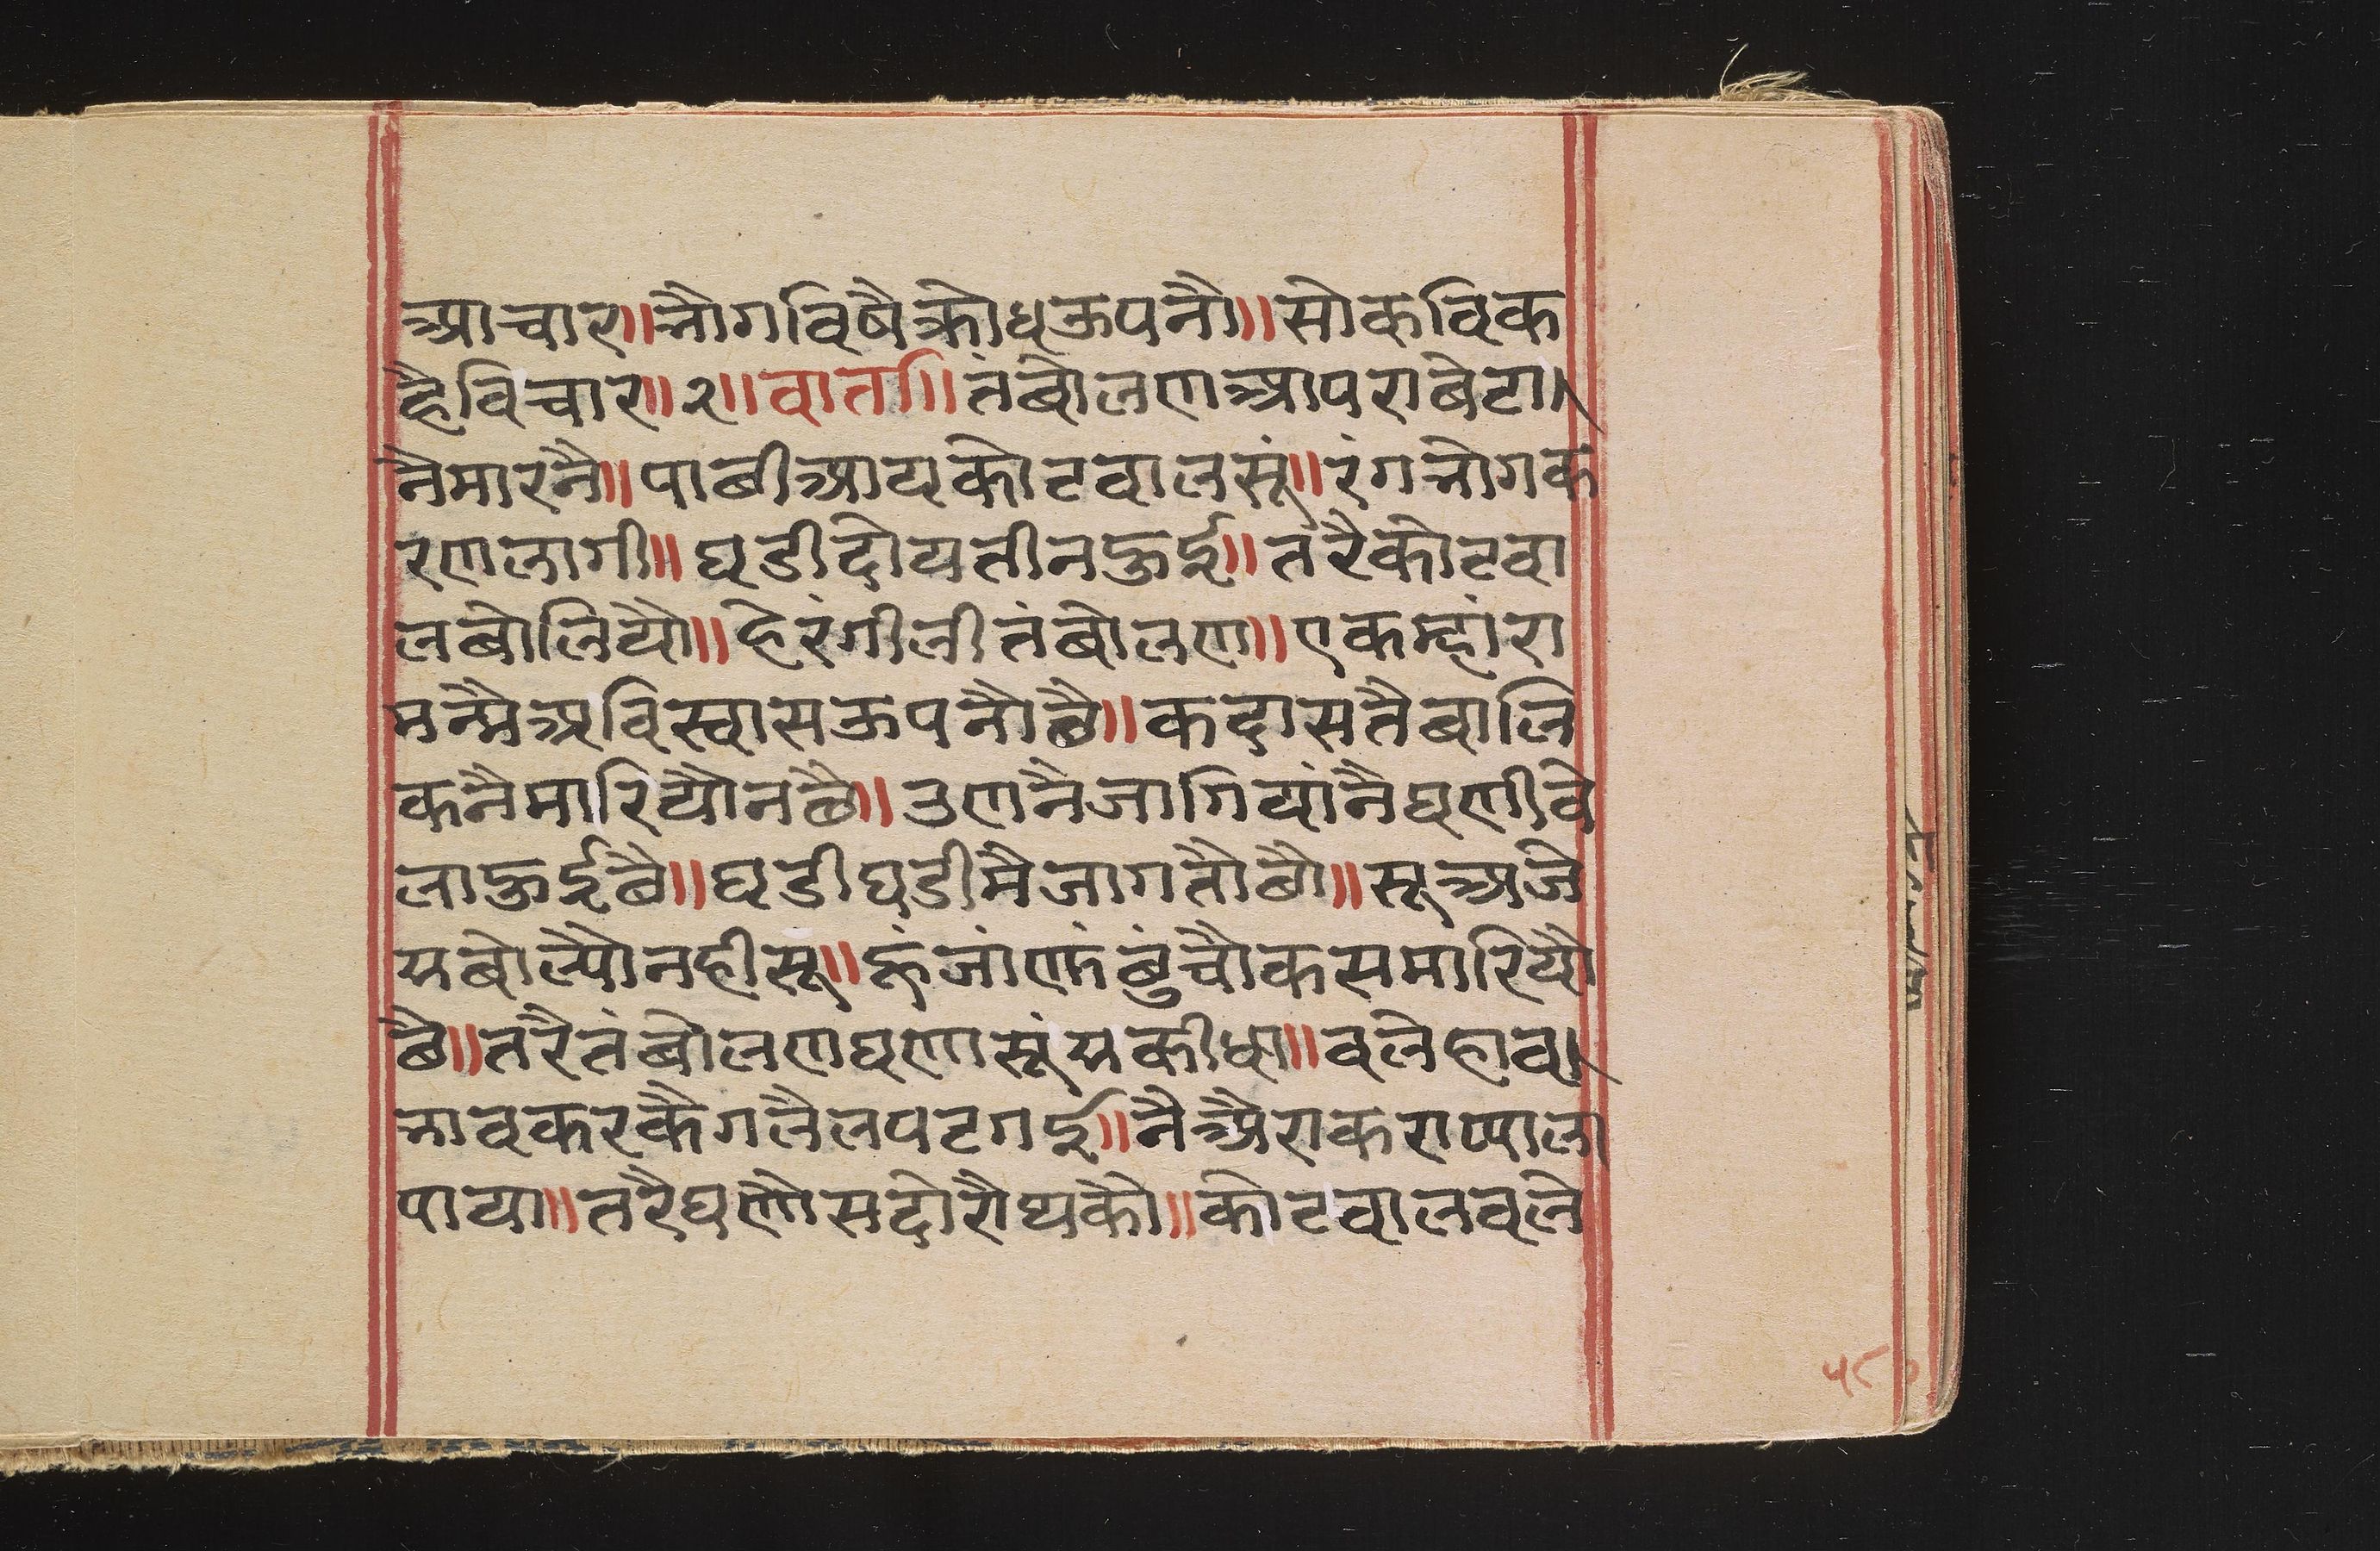 आचार॥भोगविषैक्रोधऊपनौ॥सोकविक
हैविचार॥२॥वार्ता॥तंबोलणआपराबेटा।
नैमारनै॥पाछीआयकोटवालसूं॥रंगभोगक
रणलागी॥घडीदोयतीनहुई॥तरैकोटवा
लबोलियौ॥हेरंगीलीतंबोलण॥एकम्हांरा
मन्मैअविस्वासऊपनौछै॥कदासतैबालि
कनैमारियौनछै॥उणनैजागियांनैघणीवे
लाहुईछै॥घडीघडीमैजागतौछौ॥सूअजे
यबोल्यौनहीसू॥हूंजांणंछुंचौकसमारियौ
छै॥तरैतंबोलणघणासूंयकीधा॥वलेहाव।
भावकरकैगलैलपटगई॥नैअैराकराप्याला
पाया॥तरैघणौसदोरौथकौ॥कोटवालवले